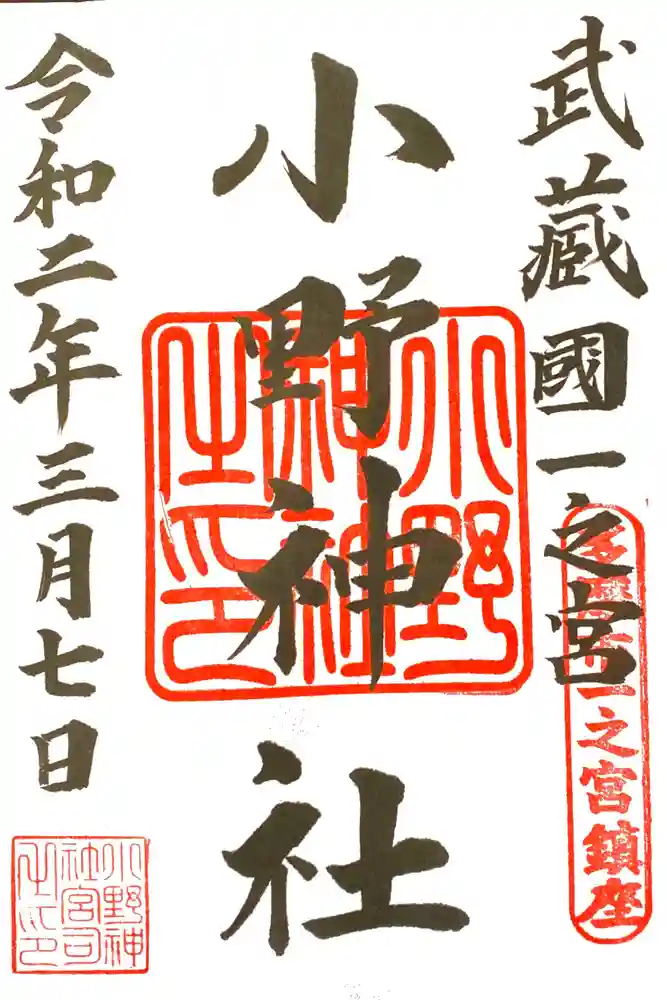 武藏國一之宮
多摩市一之宮鎮座
小野神社
小野
神社
之印
令和二年三月七日
小野神
社宮司
之印